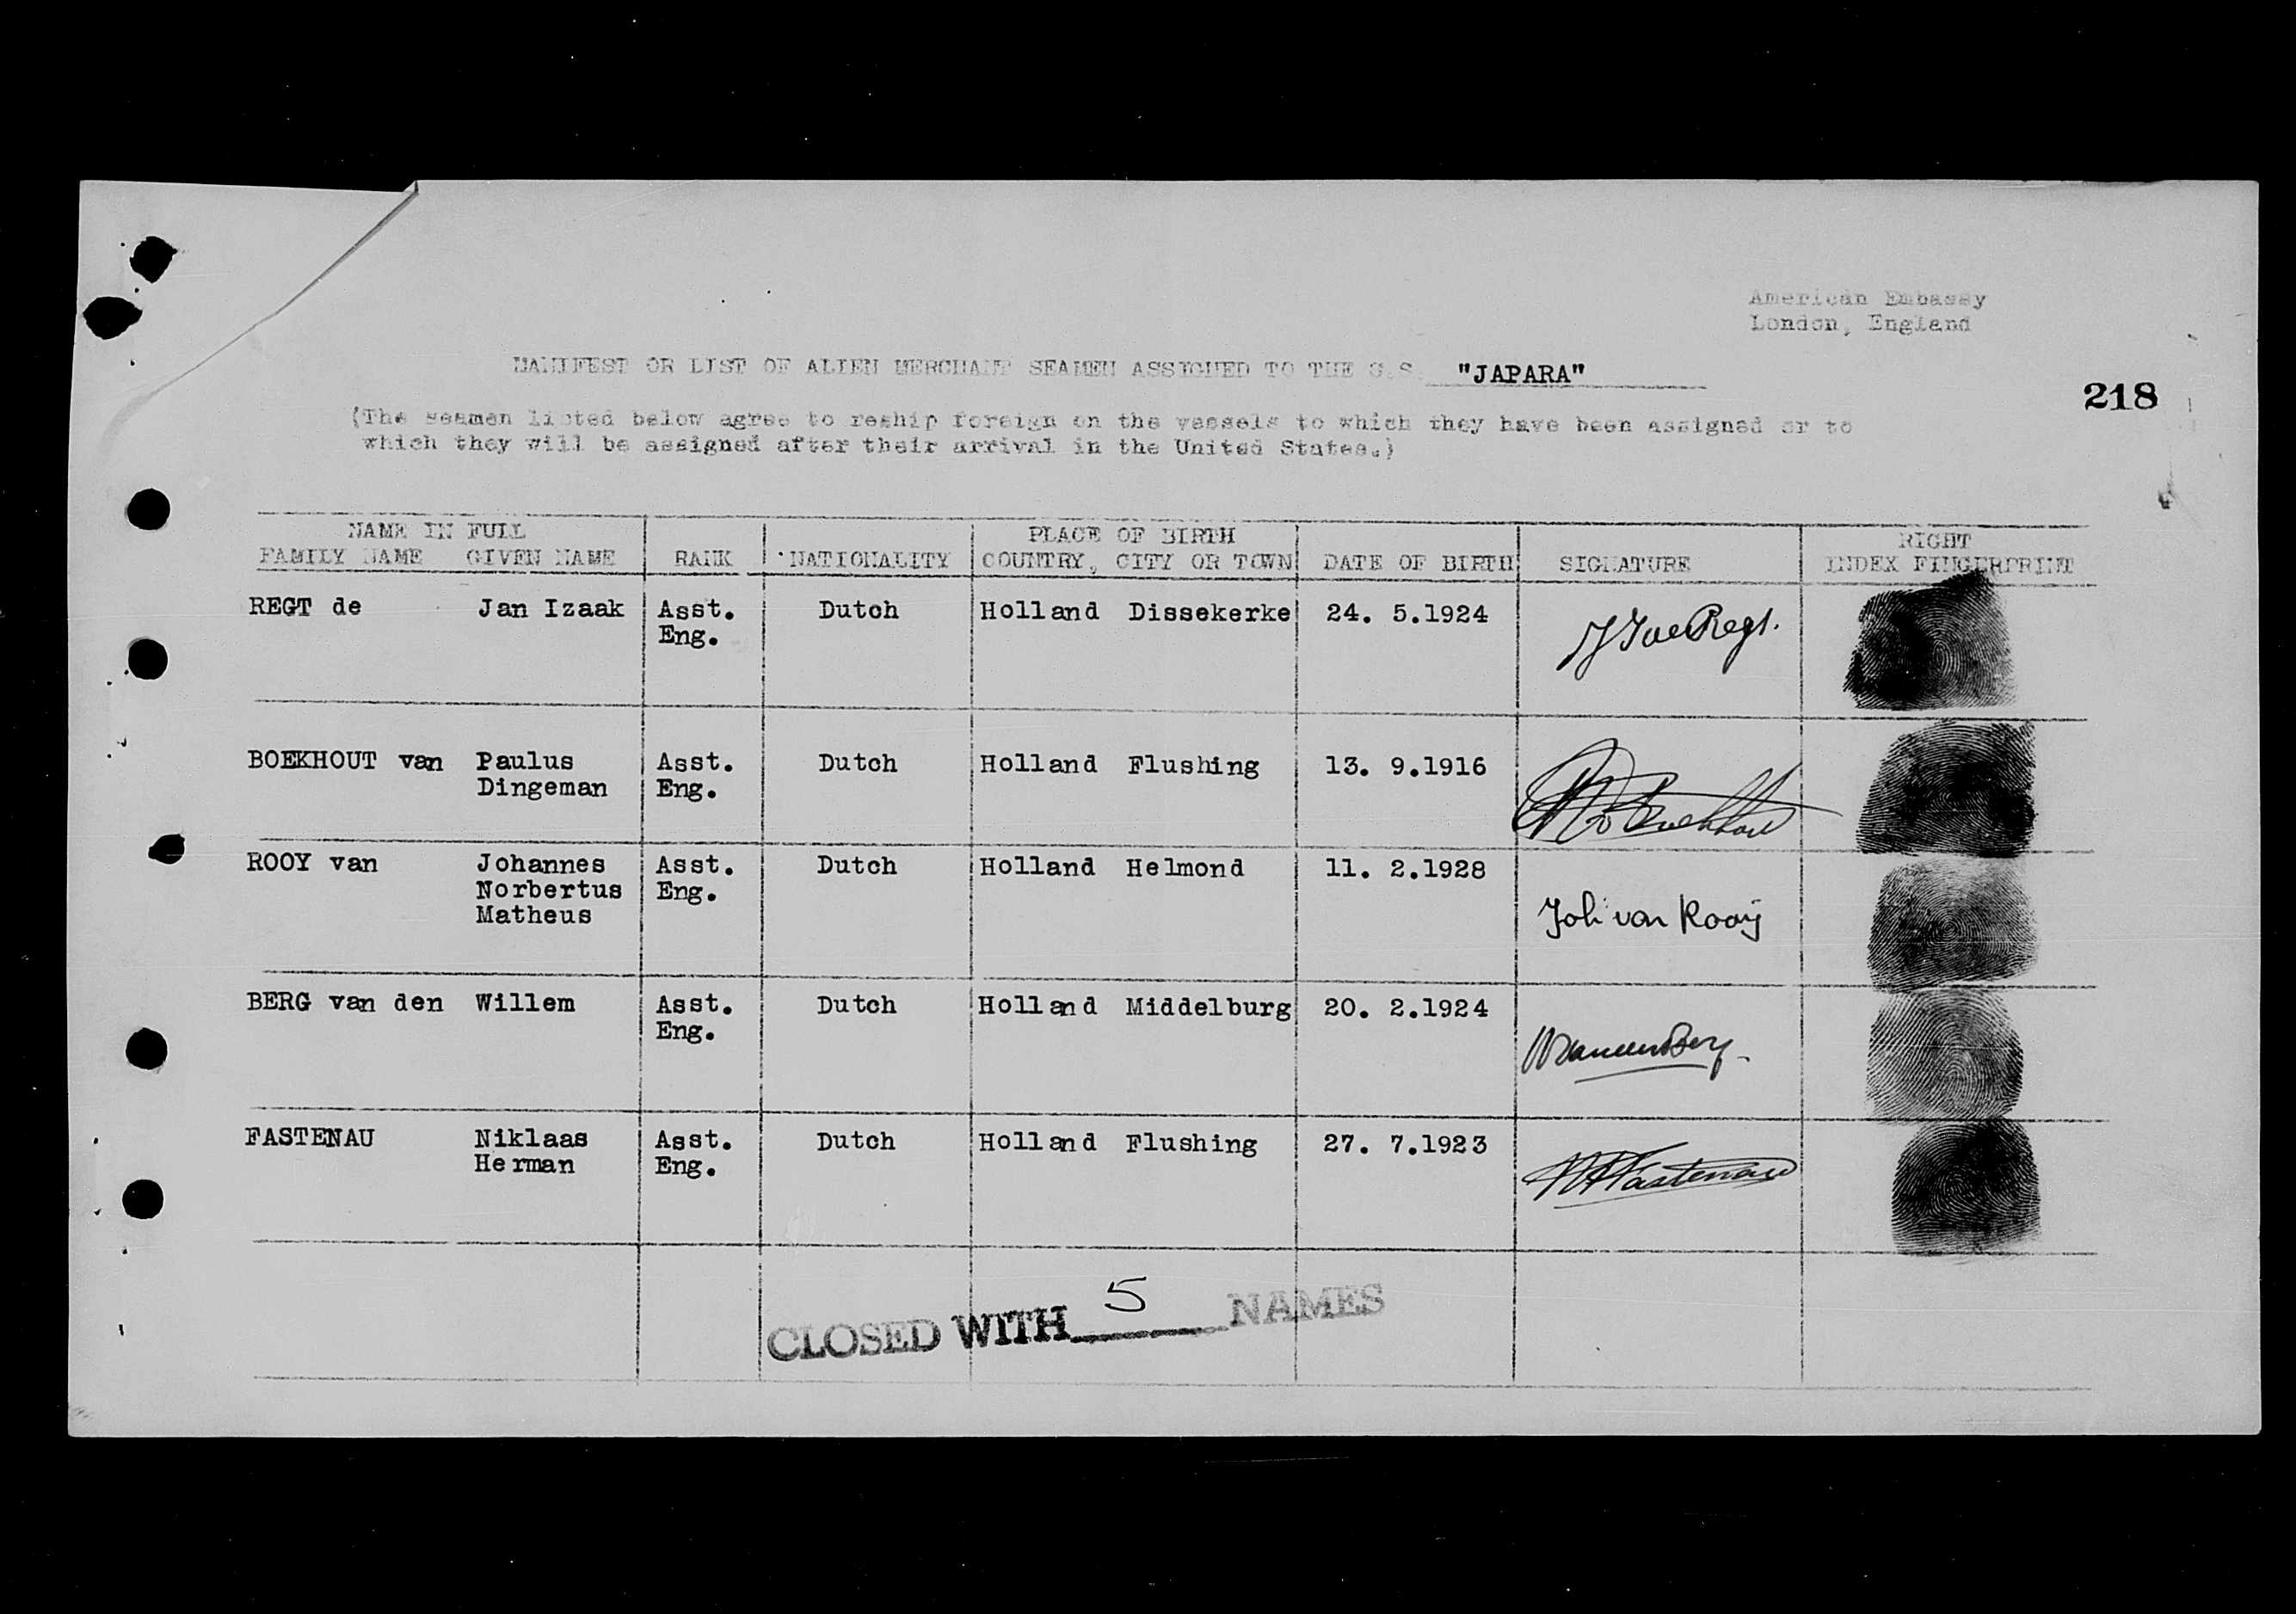 American Embassy
London, England
MANIFEST OR LIST OF ALIEN MERCHANT SEAMEN ASSIGNED TO THE S.S. "JAPARA"
218
(The seamen listed below agree to reship foreign on the vessels to which they have been assigned or to
which they will be assigned after their arrival in the United States.)
NAME IN FULL PLACE OF BIRTH RIGHT
FAMILY NAME GIVEN NAME RANK NATIONALITY COUNTRY, CITY OR TOWN DATE OF BIRTH SIGNATURE INDEX FINGERPRINT
REGT de Jan Izaak Asst. Dutch Holland Dissekerke 24. 5.1924
Eng.
J I de Regt.
BOEKHOUT van Paulus Asst. Dutch Holland Flushing 13. 9.1916
Dingeman Eng.
Boekhout
ROOY van Johannes Asst. Dutch Holland Helmond 11. 2.1928
Norbertus Eng.
Matheus
Joh van Rooij
BERG van den Willem Asst. Dutch Holland Middelburg 20. 2.1924
Eng.
W van den Berg
FASTENAU Niklaas Asst. Dutch Holland Flushing 27. 7.1923
Herman Eng.
NH Fastenau
CLOSED WITH 5 NAMES